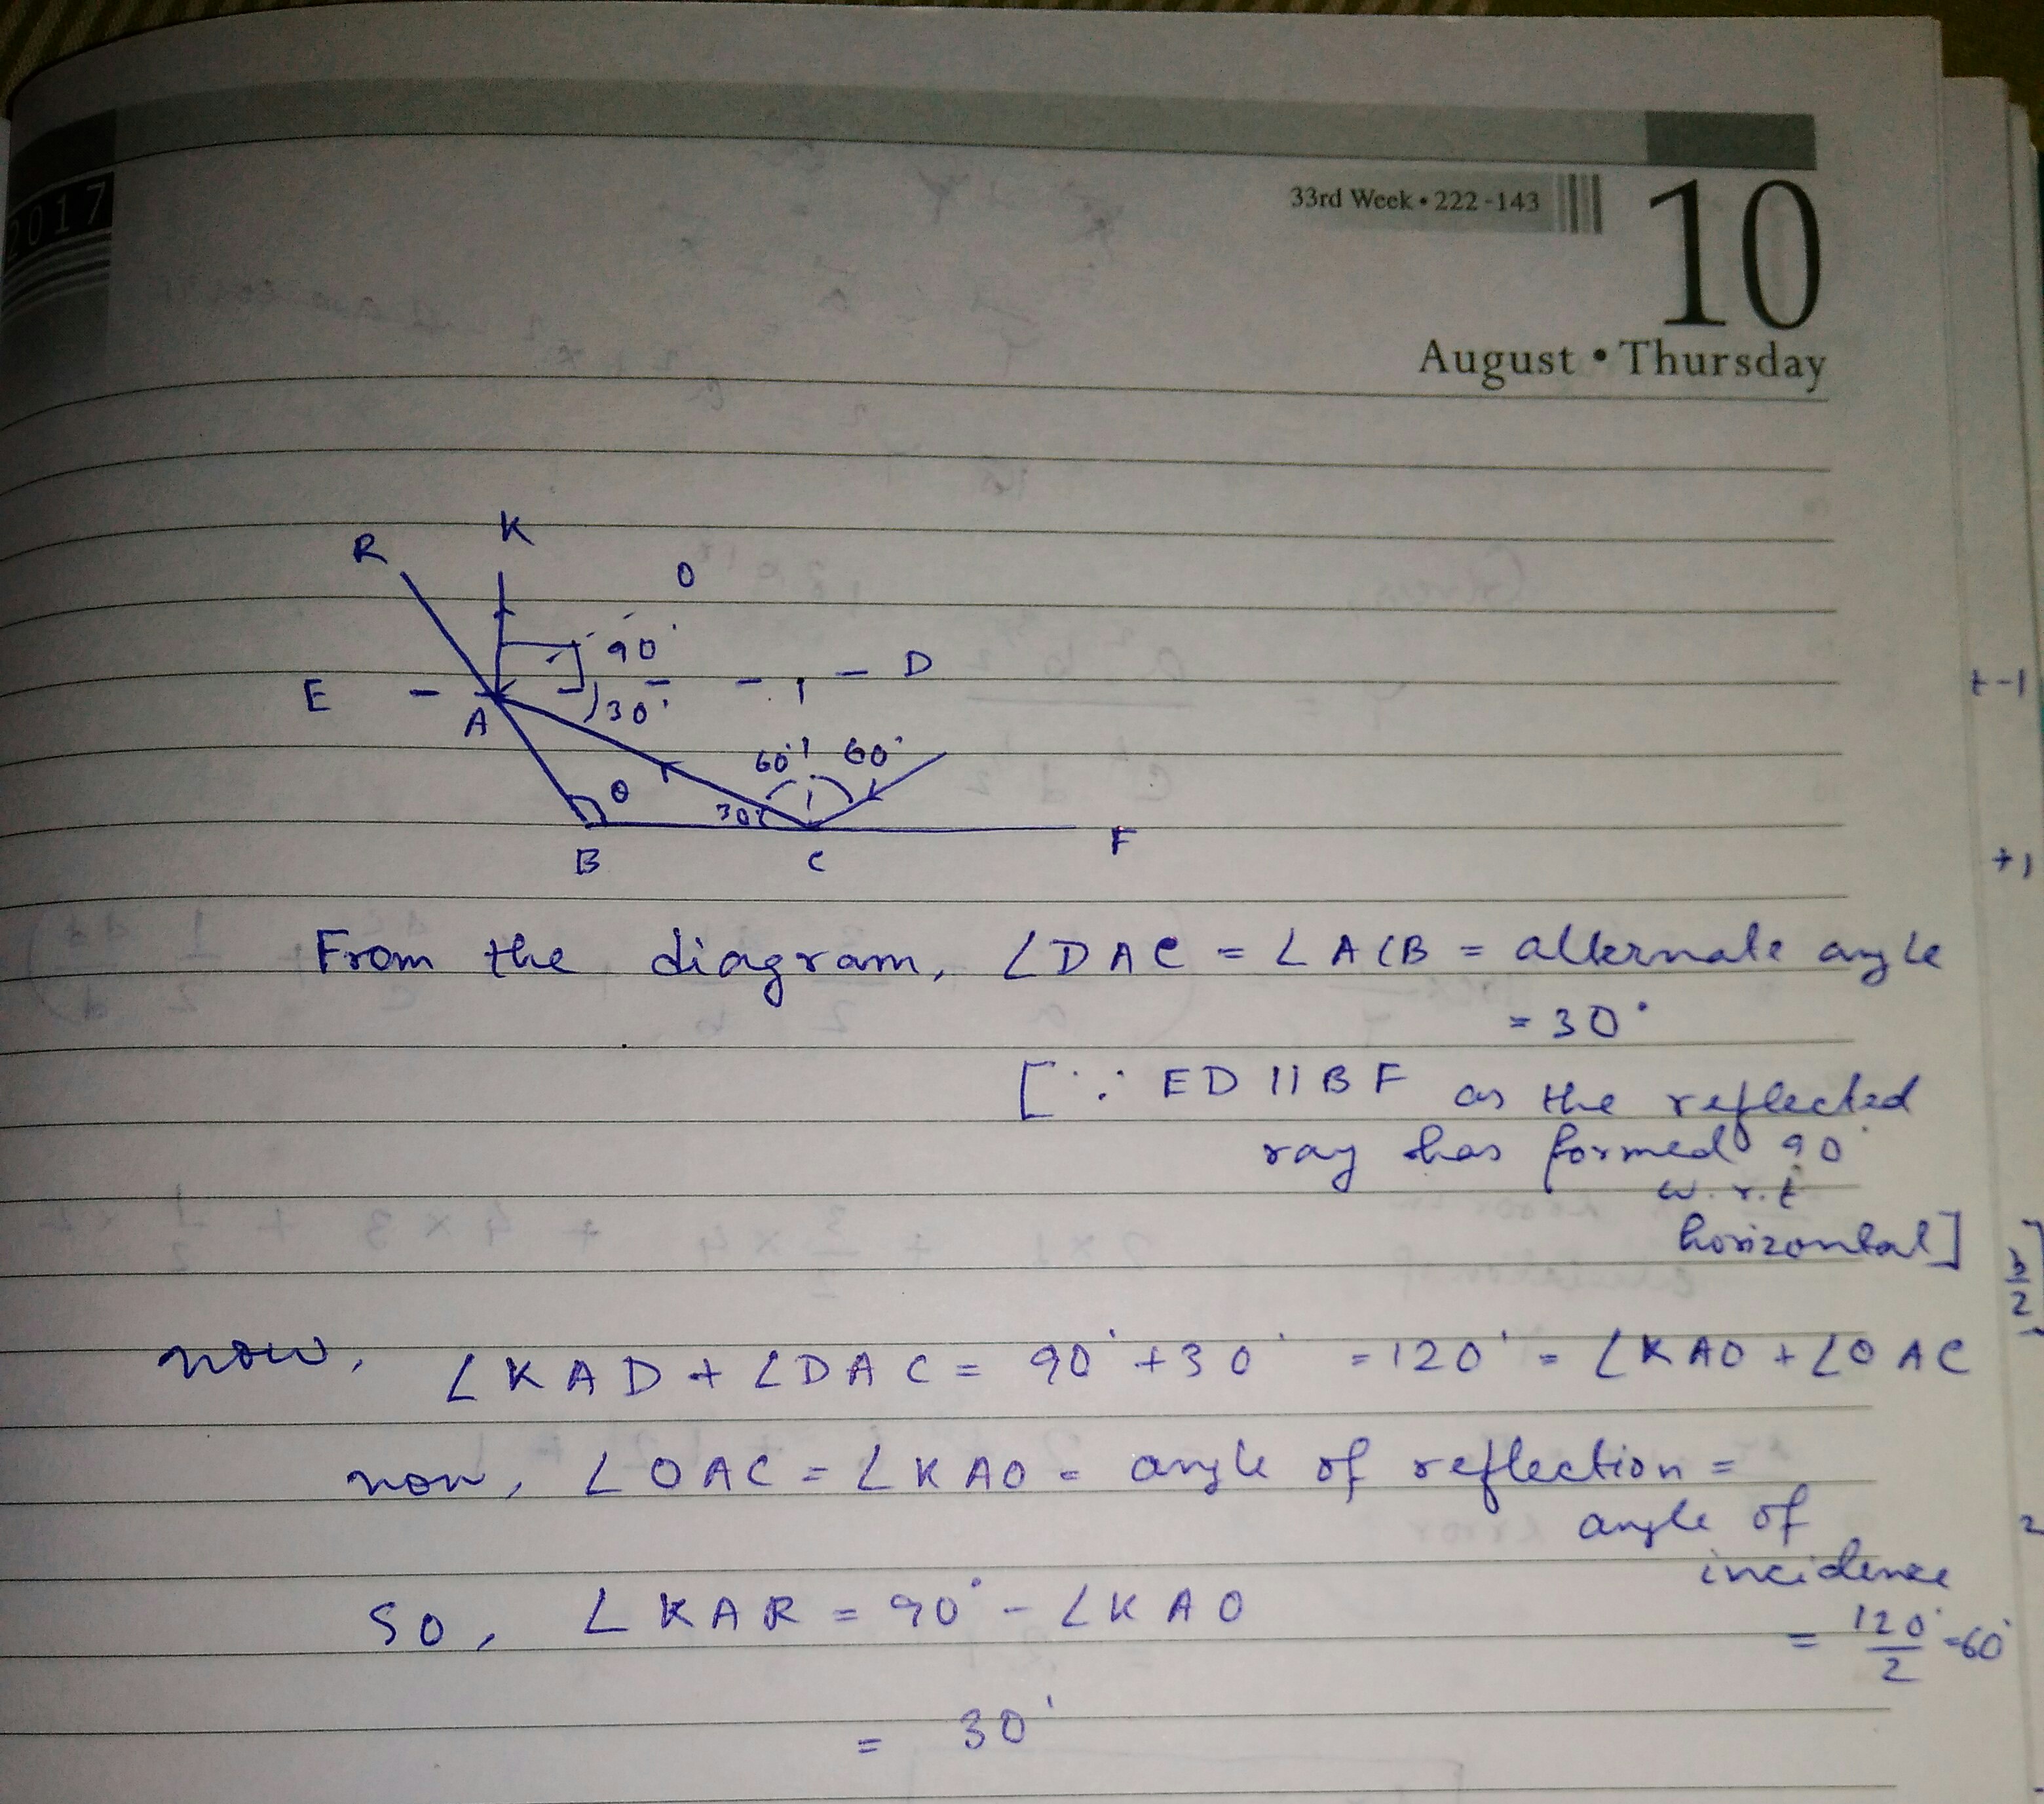 2017
33rd Week • 222-143
10
August • Thursday
R
K
O
90°
E
D
A
30°
60° 60°
θ
30°
B
C
F
t-1
+1
From the diagram, ∠DAC = ∠ACB = alternate angle
= 30°
[∵ ED || BF as the reflected
ray has formed 90°
w.r.t
horizontal]
now, ∠KAD + ∠DAC = 90° + 30° = 120° = ∠KAO + ∠OAC
now, ∠OAC = ∠KAO = angle of reflection =
angle of
incidence
= 120°/2 = 60°
so, ∠KAR = 90° - ∠KAO
= 30°